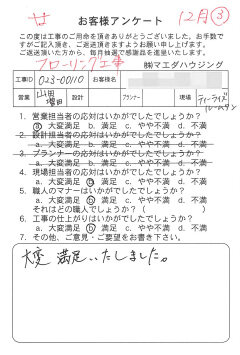 お客様アンケート 12月③
この度は工事のご用命を頂きありがとうございました。お手数で
すがご記入頂き、ご返送頂きますようお願い申し上げます。
ご返送頂いた方から、毎月抽選で感謝品を進呈いたします。
フローリング工事 ㈱マエダハウジング
工事ID 023-00110 お客様名
営業 山田 増田 設計 プランナー 現場 ティーライズ
1. 営業担当者の応対はいかがでしたでしょうか？
a. 大変満足 b. 満足 c. やや不満 d. 不満
2. 設計担当者の応対はいかがでしたでしょうか？
a. 大変満足 b. 満足 c. やや不満 d. 不満
3. プランナーの応対はいかがでしたでしょうか？
a. 大変満足 b. 満足 c. やや不満 d. 不満
4. 現場担当者の応対はいかがでしたでしょうか？
a. 大変満足 b. 満足 c. やや不満 d. 不満
5. 職人のマナーはいかがでしたでしょうか？
a. 大変満足 b. 満足 c. やや不満 d. 不満
それはどの職人でしょうか？（ ）
6. 工事の仕上がりはいかがでしたでしょうか？
a. 大変満足 b. 満足 c. やや不満 d. 不満
7. その他、ご意見・ご要望をお書き下さい。
大変満足いたしました。